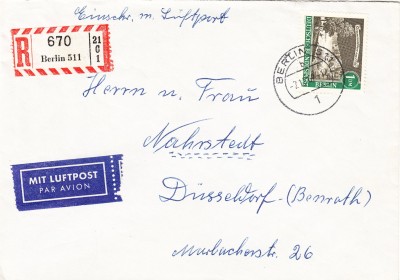 Einschr. m. Luftpost
R
670
21
C
1
Berlin 511
BERLIN
1
1 DM
BERLIN
Herrn u. Frau
Nahrstedt
MIT LUFTPOST
PAR AVION
Düsseldorf-(Benrath)
Marbacherstr. 26